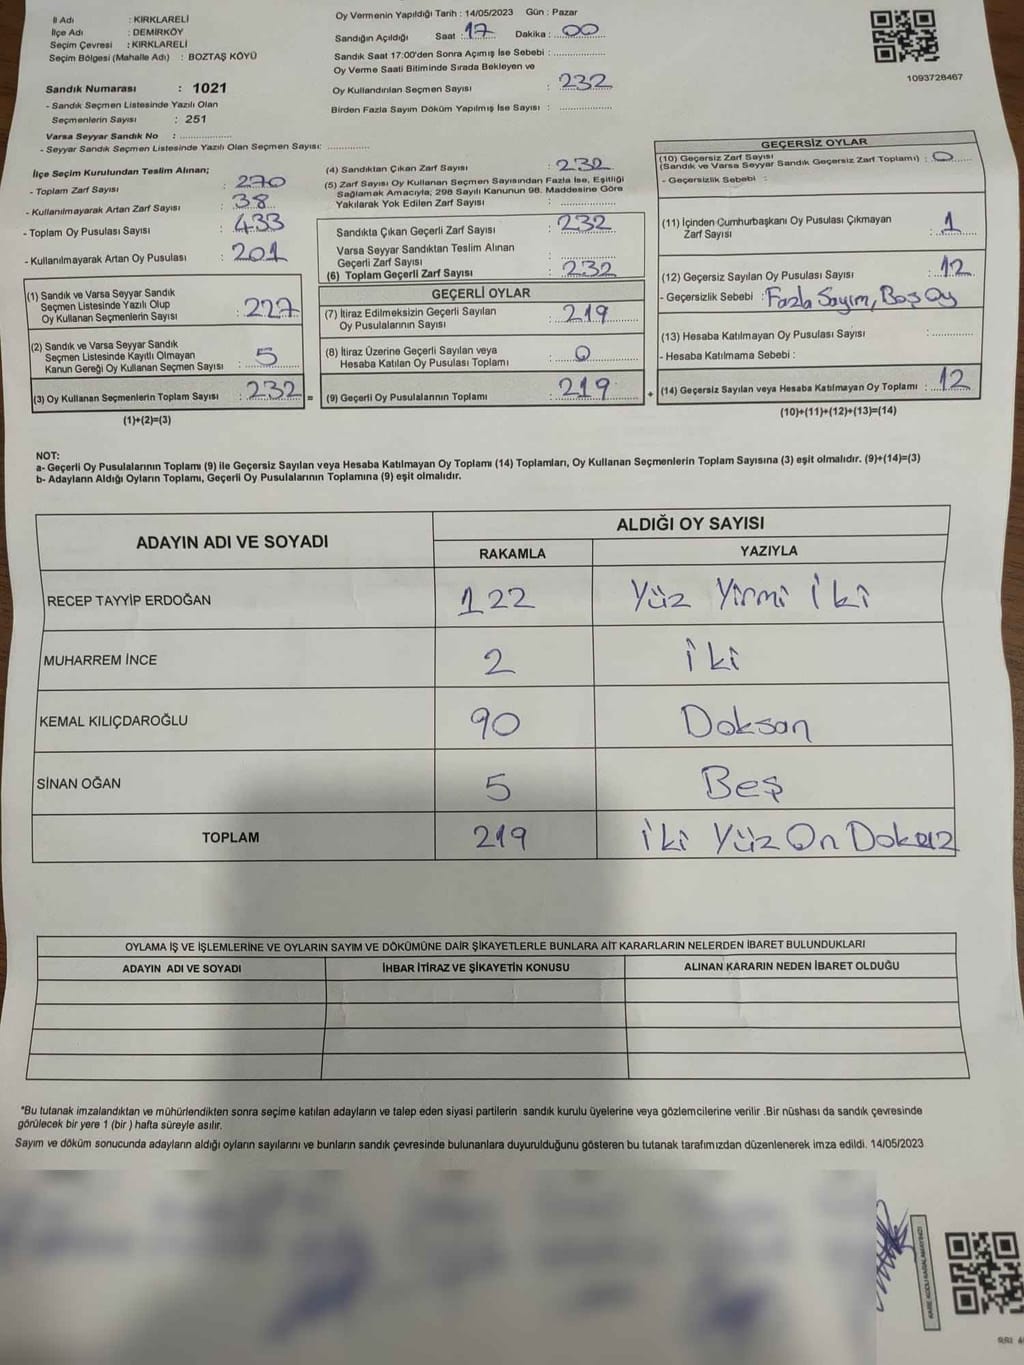 İl Adı : KIRKLARELİ
İlçe Adı : DEMİRKÖY
Seçim Çevresi : KIRKLARELİ
Seçim Bölgesi (Mahalle Adı) : BOZTAŞ KÖYÜ
Sandık Numarası : 1021
- Sandık Seçmen Listesinde Yazılı Olan
Seçmenlerin Sayısı : 251
Varsa Seyyar Sandık No : ..................
- Seyyar Sandık Seçmen Listesinde Yazılı Olan Seçmen Sayısı: ..............
Oy Vermenin Yapıldığı Tarih : 14/05/2023 Gün : Pazar
Sandığın Açıldığı Saat : 17 Dakika : 00
Sandık Saat 17:00'den Sonra Açımış İse Sebebi : .................
Oy Verme Saati Bitiminde Sırada Bekleyen ve
Oy Kullandırılan Seçmen Sayısı : 232
Birden Fazla Sayım Döküm Yapılmış İse Sayısı : .................
1093728467
İlçe Seçim Kurulundan Teslim Alınan;
- Toplam Zarf Sayısı : 270
- Kullanılmayarak Artan Zarf Sayısı : 38
- Toplam Oy Pusulası Sayısı : 433
- Kullanılmayarak Artan Oy Pusulası : 201
(1) Sandık ve Varsa Seyyar Sandık
Seçmen Listesinde Yazılı Olup
Oy Kullanan Seçmenlerin Sayısı : 227
(2) Sandık ve Varsa Seyyar Sandık
Seçmen Listesinde Kayıtlı Olmayan
Kanun Gereği Oy Kullanan Seçmen Sayısı : 5
(3) Oy Kullanan Seçmenlerin Toplam Sayısı : 232 =
(1)+(2)=(3)
(4) Sandıktan Çıkan Zarf Sayısı : 232
(5) Zarf Sayısı Oy Kullanan Seçmen Sayısından Fazla İse, Eşitliği
Sağlamak Amacıyla; 298 Sayılı Kanunun 98. Maddesine Göre
Yakılarak Yok Edilen Zarf Sayısı : .................
Sandıkta Çıkan Geçerli Zarf Sayısı : 232
Varsa Seyyar Sandıktan Teslim Alınan
Geçerli Zarf Sayısı : .................
(6) Toplam Geçerli Zarf Sayısı : 232
GEÇERLİ OYLAR
(7) İtiraz Edilmeksizin Geçerli Sayılan
Oy Pusulalarının Sayısı : 219
(8) İtiraz Üzerine Geçerli Sayılan veya
Hesaba Katılan Oy Pusulası Toplamı : 0
(9) Geçerli Oy Pusulalarının Toplamı : 219 +
GEÇERSİZ OYLAR
(10) Geçersiz Zarf Sayısı
(Sandık ve Varsa Seyyar Sandık Geçersiz Zarf Toplamı) : 0
- Geçersizlik Sebebi :
(11) İçinden Cumhurbaşkanı Oy Pusulası Çıkmayan
Zarf Sayısı : 1
(12) Geçersiz Sayılan Oy Pusulası Sayısı : 12
- Geçersizlik Sebebi : Fazla Sayım, Boş Oy
(13) Hesaba Katılmayan Oy Pusulası Sayısı : ..............
- Hesaba Katılmama Sebebi :
(14) Geçersiz Sayılan veya Hesaba Katılmayan Oy Toplamı : 12
(10)+(11)+(12)+(13)=(14)
NOT:
a- Geçerli Oy Pusulalarının Toplamı (9) ile Geçersiz Sayılan veya Hesaba Katılmayan Oy Toplamı (14) Toplamları, Oy Kullanan Seçmenlerin Toplam Sayısına (3) eşit olmalıdır. (9)+(14)=(3)
b- Adayların Aldığı Oyların Toplamı, Geçerli Oy Pusulalarının Toplamına (9) eşit olmalıdır.
ADAYIN ADI VE SOYADI ALDIĞI OY SAYISI
RAKAMLA YAZIYLA
RECEP TAYYİP ERDOĞAN 122 Yüz Yirmi İki
MUHARREM İNCE 2 İki
KEMAL KILIÇDAROĞLU 90 Doksan
SİNAN OĞAN 5 Beş
TOPLAM 219 İki Yüz On Dokuz
OYLAMA İŞ VE İŞLEMLERİNE VE OYLARIN SAYIM VE DÖKÜMÜNE DAİR ŞİKAYETLERLE BUNLARA AİT KARARLARIN NELERDEN İBARET BULUNDUKLARI
ADAYIN ADI VE SOYADI İHBAR İTİRAZ VE ŞİKAYETİN KONUSU ALINAN KARARIN NEDEN İBARET OLDUĞU
*Bu tutanak imzalandıktan ve mühürlendikten sonra seçime katılan adayların ve talep eden siyasi partilerin sandık kurulu üyelerine veya gözlemcilerine verilir .Bir nüshası da sandık çevresinde
görülecek bir yere 1 (bir ) hafta süreyle asılır.
Sayım ve döküm sonucunda adayların aldığı oyların sayılarını ve bunların sandık çevresinde bulunanlara duyurulduğunu gösteren bu tutanak tarafımızdan düzenlenerek imza edildi. 14/05/2023
KARE KODU KARALAMAYINIZ!